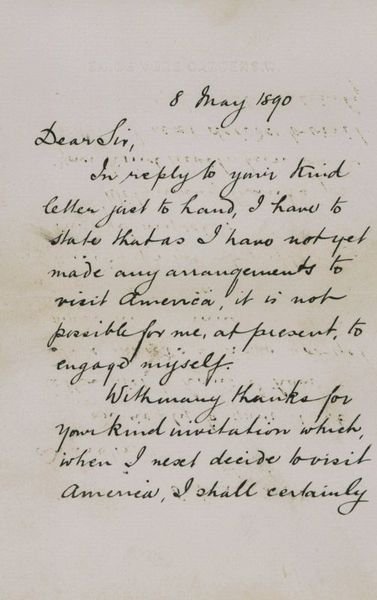 8 May 1890
Dear Sir,
In reply to your kind
letter just to hand, I have to
state that as I have not yet
made any arrangements to
visit America, it is not
possible for me, at present, to
engage myself.
With many thanks for
your kind invitation which,
when I next decide to visit
America, I shall certainly